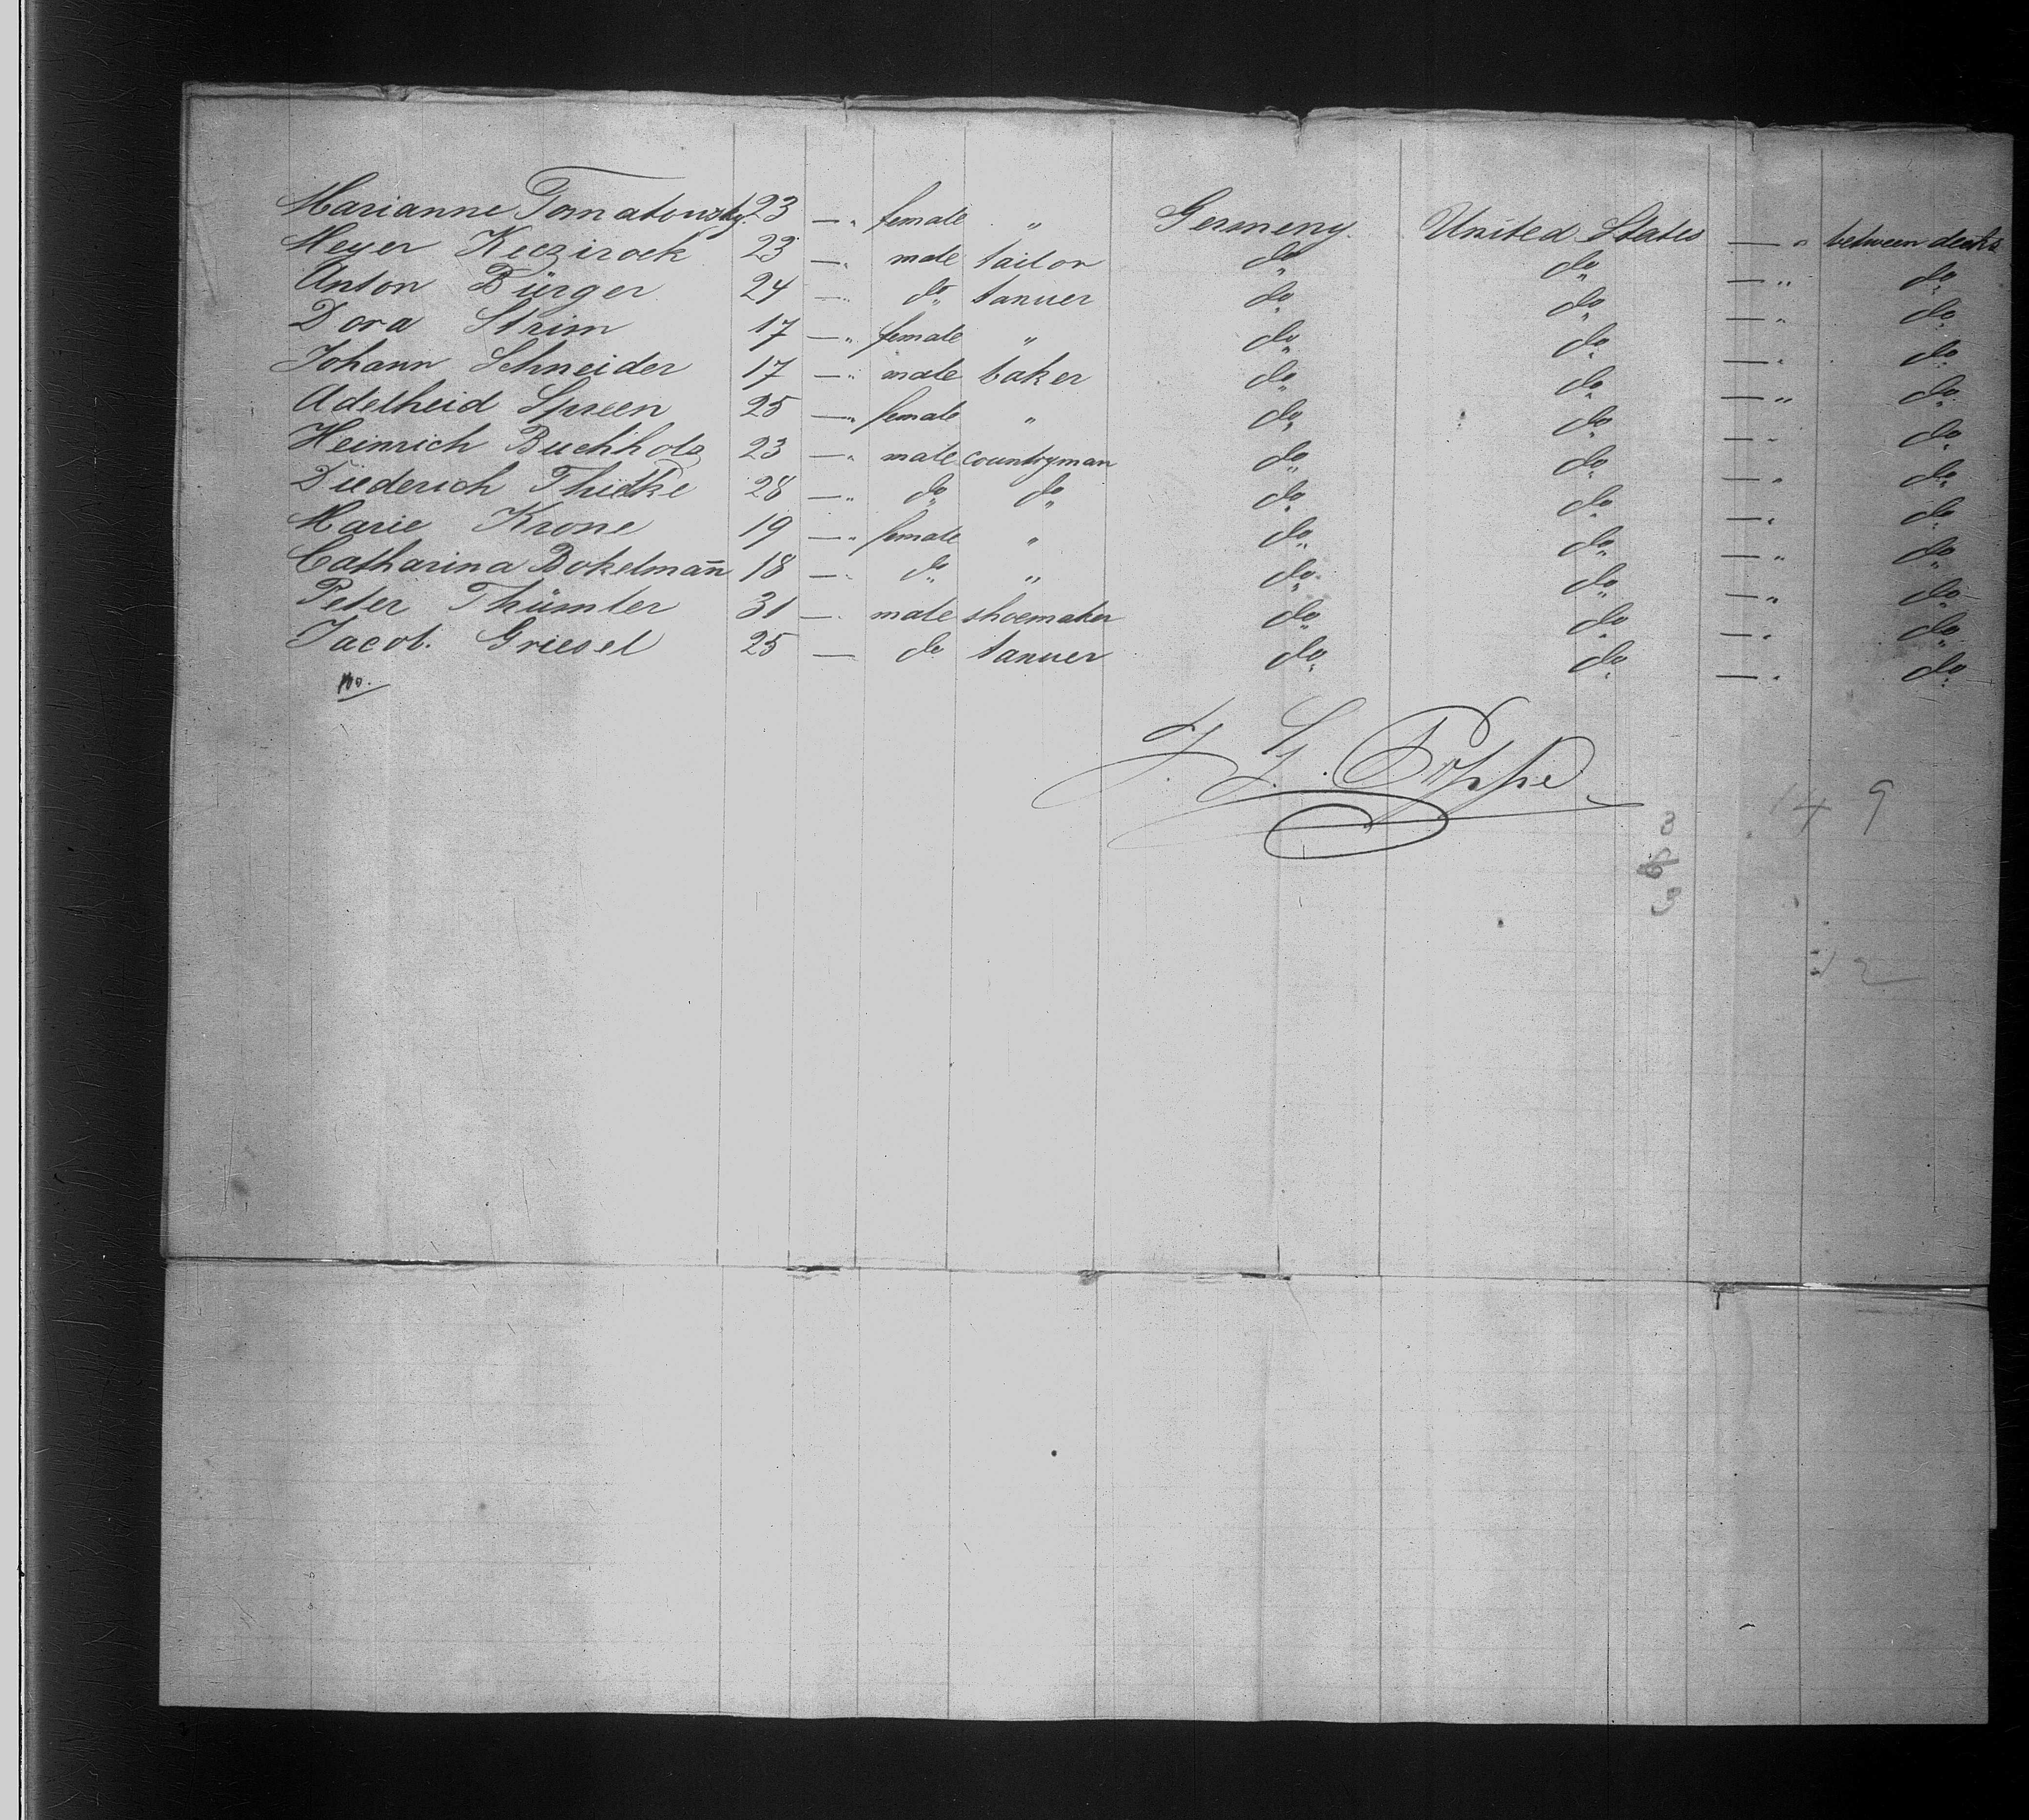 Marianne Tomatowsky. 23 — " female " Germeny. United States — " between decks
Meyer Keczirock 23 — " male tailor do " do " — " do "
Anton Bürger 24 — " do " tanner do " do " — " do "
Dora Strim 17 — " female " do " do " — " do "
Johann Schneider 17 — " male baker do " do " — " do "
Adelheid Spreen 25 — " female " do " do " — " do "
Heinrich Buchholz 23 — " male countryman do " do " — " do "
Diederich Thielke 28 — " do " do " do " do " — " do "
Marie Krone 19 — " female " do " do " — " do "
Catharina Bokelman̄n 18 — " do " " do " do " — " do "
Peter Thümler 31 — " male shoemaker do " do " — " do "
Jacob. Griesel 25 — do tanner do " do " — " do "
110.
Poppe
14 9
3
6
3
12